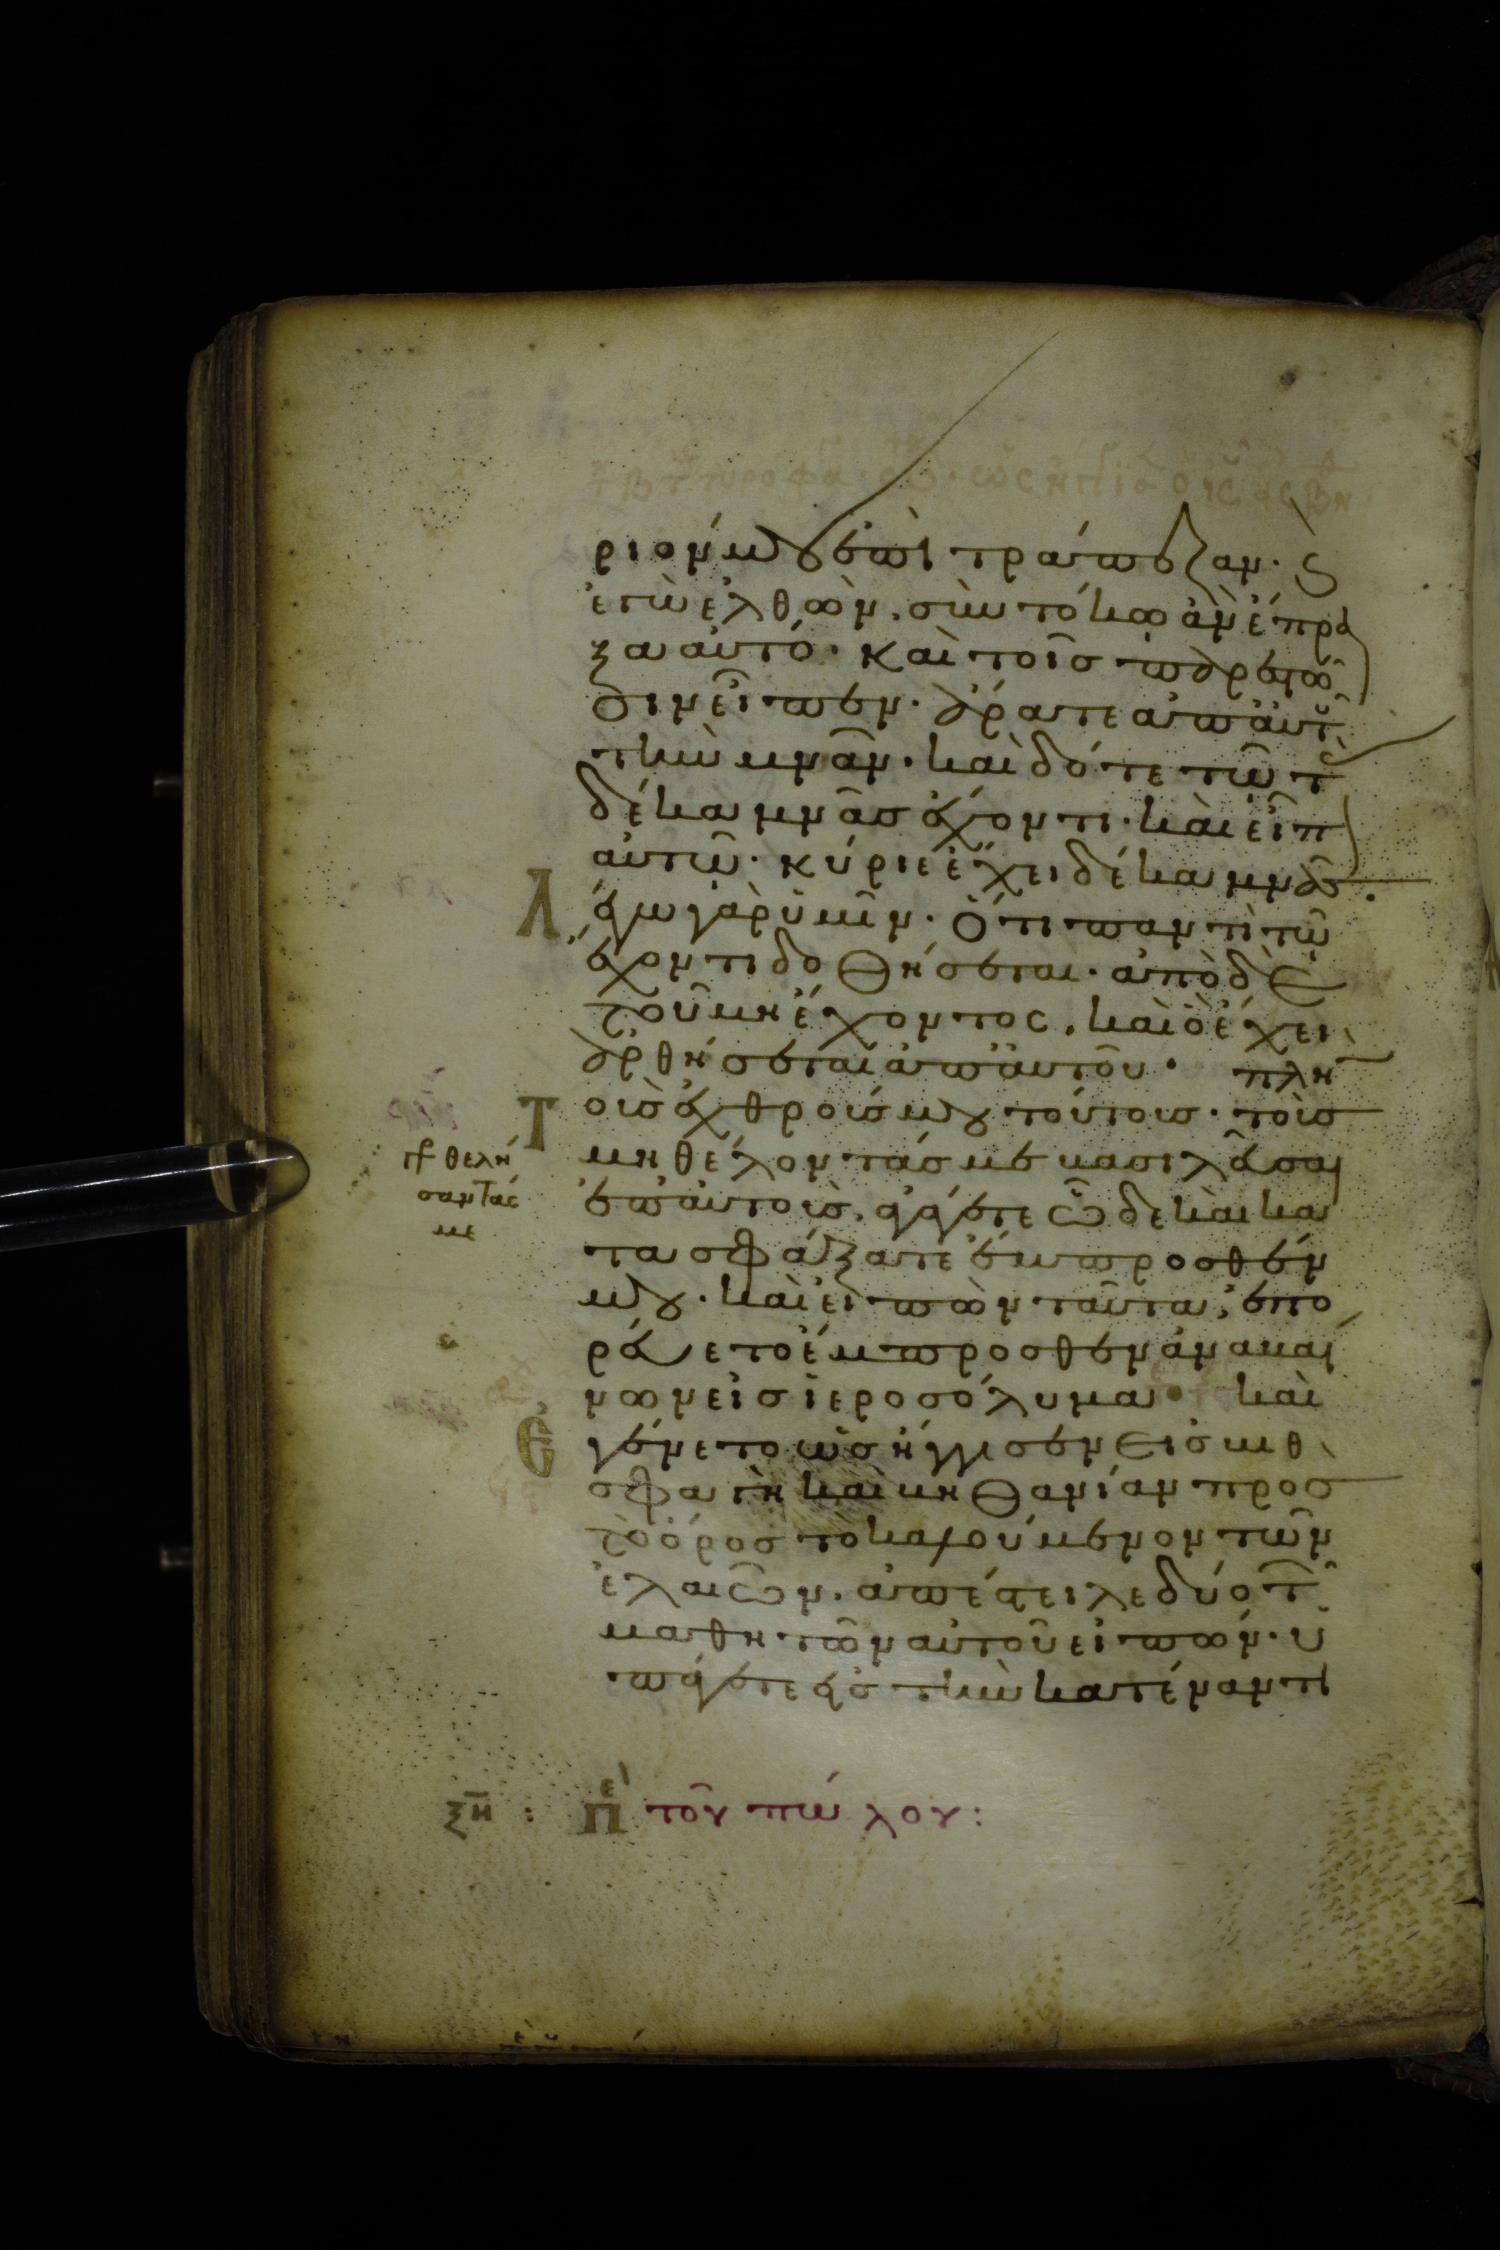 ριον μου ἐπὶ τράπεζαν· ϗ
ἐγὼ ἐλθὼν, σὺν τόκω ἂν ἔπρα
ξα αὐτό· καὶ τοῖς παρεστῶ
σιν εἶπεν· ἄρατε ἀπ' αὐτοῦ
τὴν μνᾶν· καὶ δότε τῶ τ(ὰς)
δέκα μνᾶς ἔχοντι· καὶ εἶπ(ον)
αὐτῶ· κύριε ἔχει δέκα μνᾶς·
Λέγω γὰρ ὑμῖν· ὅτι παντὶ τῶ
ἔχοντι δοθήσεται· ἀπὸ δὲ
τοῦ μὴ ἔχοντος, καὶ ὃ ἔχει
ἀρθήσεται ἀπ' αὐτοῦ· πλὴν
Τοὺς ἐχθρούς μου τούτους· τοὺς
μὴ θέλοντάς με βασιλεῦσαι
ἐπ' αὐτοὺς, ἀγάγετε ὧδε καὶ κα
τασφάξατε ἔμπροσθέν
μου· καὶ εἰπὼν ταῦτα, ἐπο
ρεύετο ἔμπροσθεν ἀναβαί
νων εἰς ἱεροσόλυμα· καὶ
Ἐγένετο ὡς ἤγγισεν εἰς βηθ
σφαγὴ καὶ βηθανίαν πρὸς
τὸ ὄρος τὸ καλούμενον τῶν
ἐλαιῶν· ἀπέστειλε δύο τῶν
μαθητῶν αὐτοῦ εἰπών· ὑ
πάγετε εἰς τὴν κατέναντι
γρ θελή
σαντάς
με
ξη : πε τοῦ πώλου: